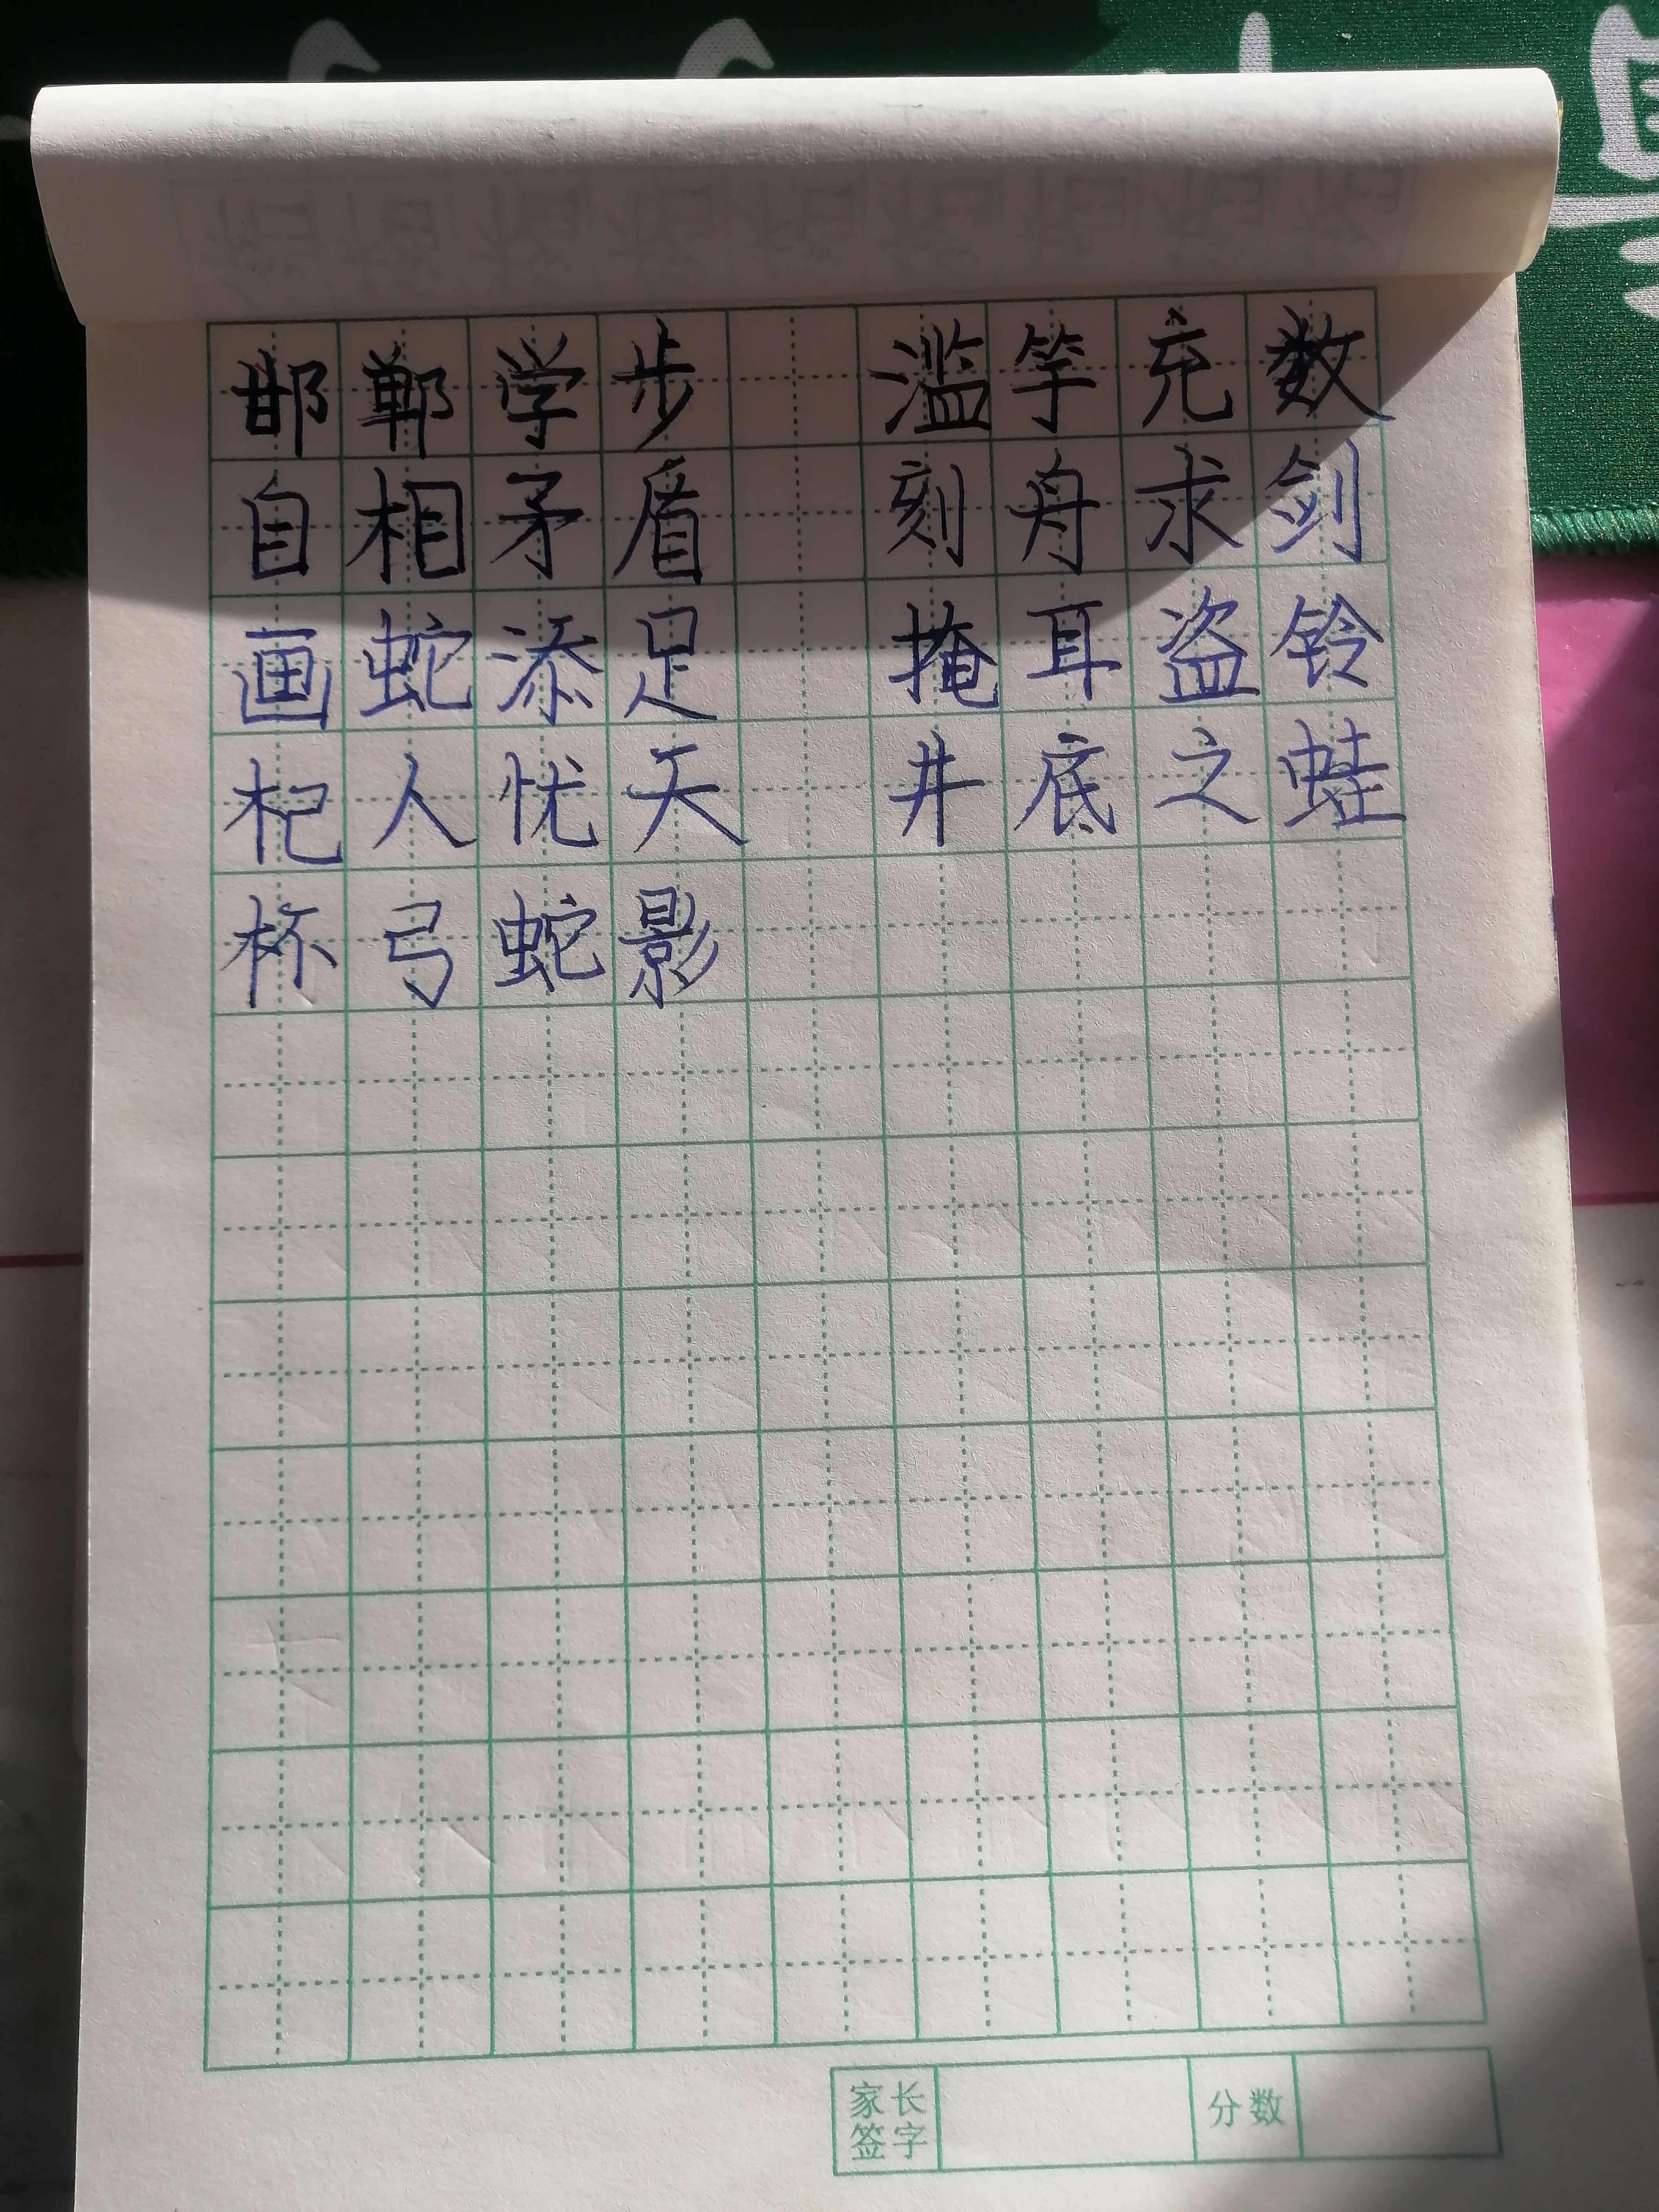 邯郸学步 滥竽充数
自相矛盾 刻舟求剑
画蛇添足 掩耳盗铃
杞人忧天 井底之蛙
杯弓蛇影
家长签字 分数